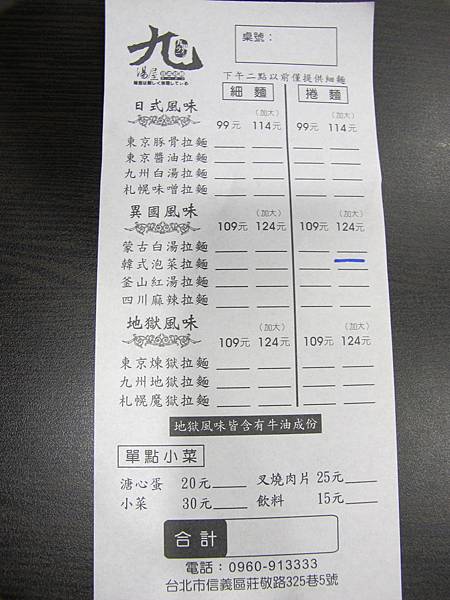 九
湯屋
桌號：
下午二點以前僅提供細麵
細麵 捲麵
日式風味 (加大) (加大)
99元 114元 99元 114元
東京豚骨拉麵
東京醬油拉麵
九州白湯拉麵
札幌味噌拉麵
異國風味 (加大) (加大)
109元 124元 109元 124元
蒙古白湯拉麵
韓式泡菜拉麵
釜山紅湯拉麵
四川麻辣拉麵
地獄風味 (加大) (加大)
109元 124元 109元 124元
東京煉獄拉麵
九州地獄拉麵
札幌魔獄拉麵
地獄風味皆含有牛油成份
單點小菜
溏心蛋 20元 叉燒肉片 25元
小菜 30元 飲料 15元
合計
電話：0960-913333
台北市信義區莊敬路325巷5號